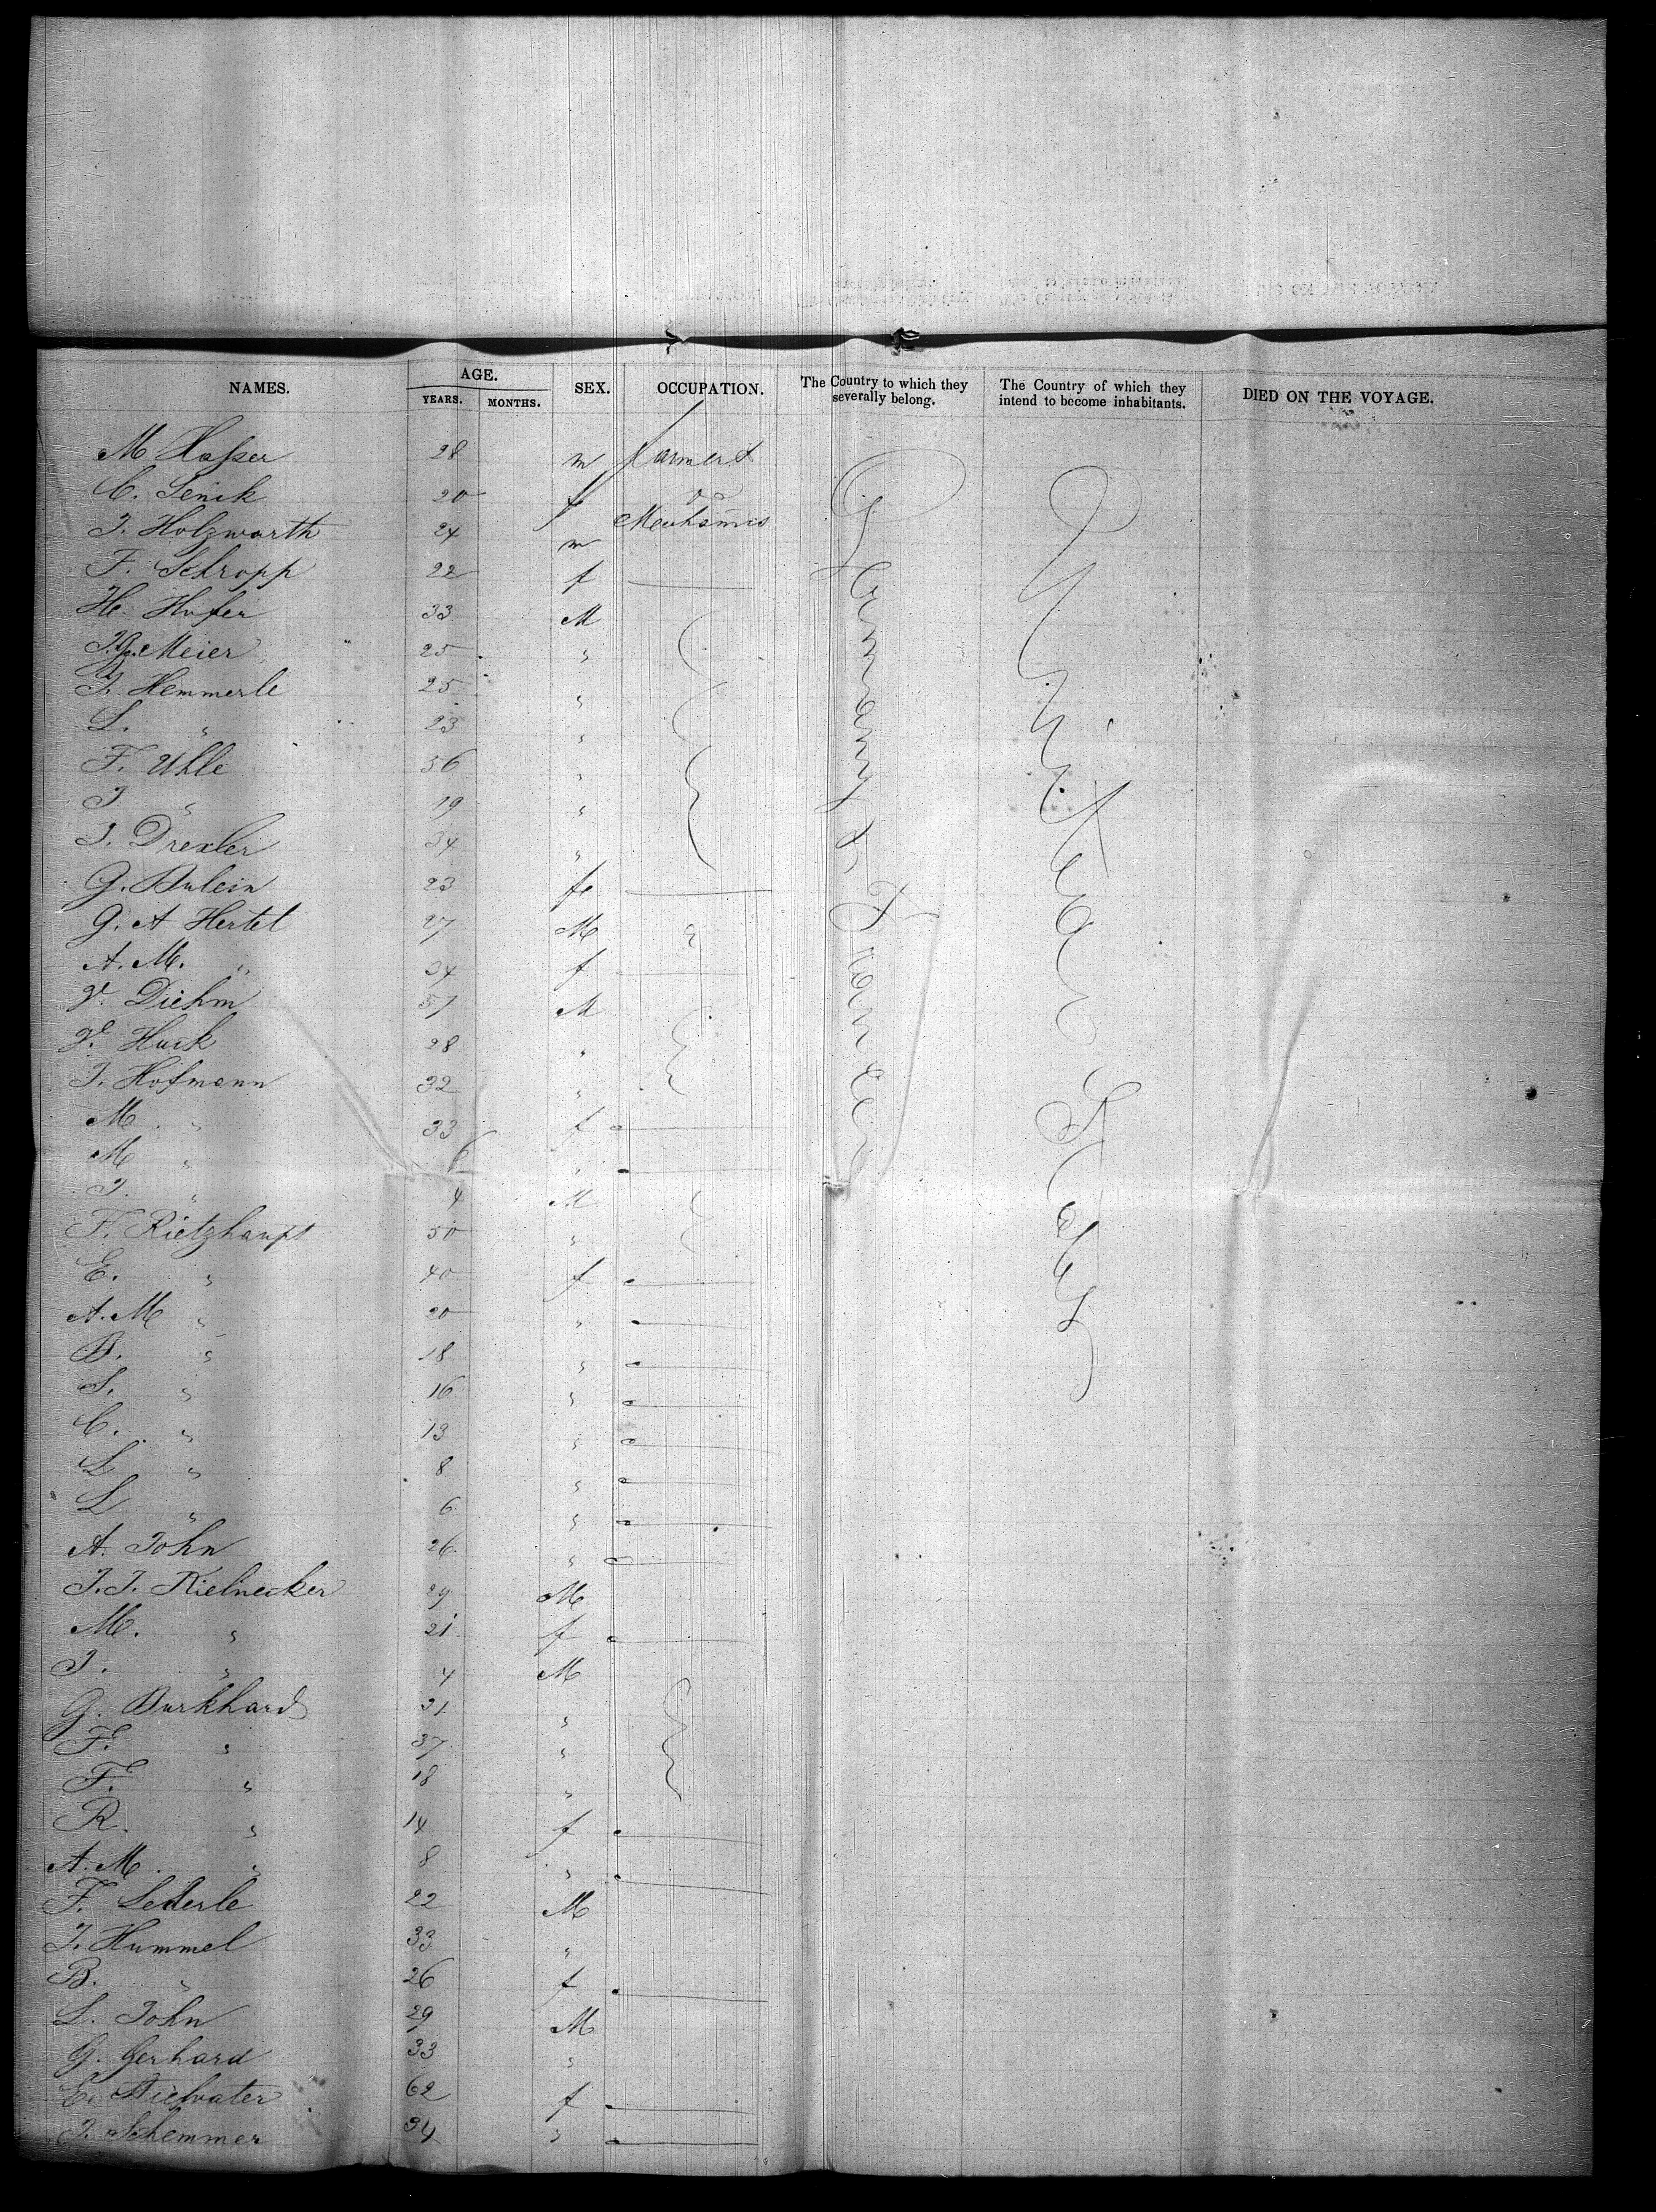 NAMES. AGE. YEARS. MONTHS. SEX. OCCUPATION. The Country to which they severally belong. The Country of which they intend to become inhabitants. DIED ON THE VOYAGE.
M 28 m Farmer &
C. Senck 20 f do
J. Holzwarth 24 m
F. Schropp 22 f
H. Hufer 33 M
Meier 25 "
J. Hemmerle 25 "
L. " 23 "
F. Uhle 56 "
J " 19 "
J. Drexler 34 "
G. 23 fe
G. A Hertel 27 M "
A. M. " 34 f
V. Diehm 57 M
V. Huck 28 "
J. Hofmann 32 "
M. " 33 f
M " 6 "
J. " 4 M
F. Rietzhaupt 50 "
E. " 40 f
A. M " 20 "
B. " 18 "
S. " 16 "
C. " 13 "
L " 8 "
L " 6 "
A. John 26 "
J. J. 29 M
M. " 21 f
J. " 4 M
G. Burkhard 31 "
F. " 37 "
F. " 18 "
R. " 14 f
A. M. " 8 "
F. Lederle 22 M
J. Hummel 33 "
B. " 26 f
L. John 29 M
G. Gerhard 33 "
E. 62 f
J. Schemmer 34 "
Germany & France
United States